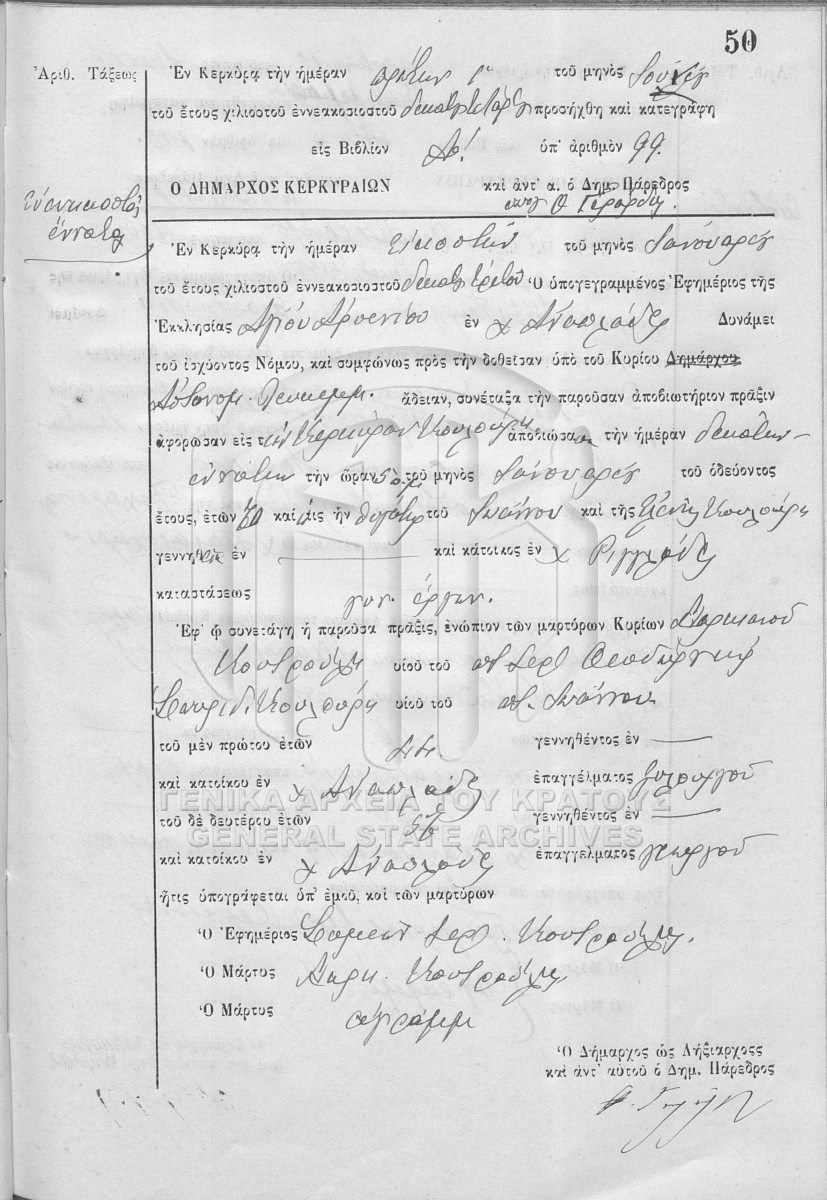 50
Ἀριθ. Τάξεως
Ἐν Κερκύρᾳ τὴν ἡμέραν πρώτην τοῦ μηνὸς
τοῦ ἔτους χιλιοστοῦ ἐννεακοσιοστοῦ προσήχθη καὶ κατεγράφη
εἰς Βιβλίον Α! ὑπ' ἀριθμὸν 99
Ο ΔΗΜΑΡΧΟΣ ΚΕΡΚΥΡΑΙΩΝ καὶ ἀντ' α. ὁ Δημ. Πάρεδρος
Ἐνενηκοστὸς
ἔννατος
Ἐν Κερκύρᾳ τὴν ἡμέραν εἰκοστὴν τοῦ μηνὸς Ἰανουαρίου
τοῦ ἔτους χιλιοστοῦ ἐννεακοσιοστοῦ δεκάτου τρίτου Ὁ ὑπογεγραμμένος Ἐφημέριος τῆς
Ἐκκλησίας Ἁγίου Ἀρσενίου ἐν χ Ἀναπλάδες Δυνάμει
τοῦ ἰσχύοντος Νόμου, καὶ συμφώνως πρὸς τὴν δοθεῖσαν ὑπὸ τοῦ Κυρίου Δημάρχου
Ἀστυνομ. Λευκιμμ. ἄδειαν, συνέταξα τὴν παροῦσαν ἀποβιωτήριον πρᾶξιν
ἀφορῶσαν εἰς τὴν Κουλούρη ἀποβιώσασαν τὴν ἡμέραν δεκάτην
ἐννάτην τὴν ὥραν τοῦ μηνὸς Ἰανουαρίου τοῦ ὁδεύοντος
ἔτους, ἐτῶν καὶ εἰς ἣν θυγάτηρ τοῦ Ἰωάννου καὶ τῆς Ἑλένης Κουλούρη
γεννηθεῖσα ἐν — καὶ κάτοικος ἐν χ Ριγγλάδες
καταστάσεως γυν. ἐργατ.
Ἐφ' ᾧ συνετάγη ἡ παροῦσα πρᾶξις, ἐνώπιον τῶν μαρτύρων Κυρίων
Κουτρούλη υἱοῦ τοῦ
Σπυρίδ. Κουλούρη υἱοῦ τοῦ ποτ. Ἰωάννου
τοῦ μὲν πρώτου ἐτῶν 44 γεννηθέντος ἐν —
καὶ κατοίκου ἐν χ Ἀναπλάδες ἐπαγγέλματος ξυλουργοῦ
ΓΕΝΙΚΑ ΑΡΧΕΙΑ ΤΟΥ ΚΡΑΤΟΥΣ
τοῦ δὲ δευτέρου ἐτῶν 56 γεννηθέντος ἐν —
GENERAL STATE ARCHIVES
καὶ κατοίκου ἐν χ Ἀναπλάδες ἐπαγγέλματος γεωργοῦ
ἥτις ὑπογράφεται ὑπ' ἐμοῦ, καὶ τῶν μαρτύρων
Ὁ Ἐφημέριος Ἱερ. Κουτρούλης
Ὁ Μάρτυς Κουτρούλης
Ὁ Μάρτυς ἀγράμμ.
Ὁ Δήμαρχος ὡς Ληξίαρχος
καὶ ἀντ' αὐτοῦ ὁ Δημ. Πάρεδρος